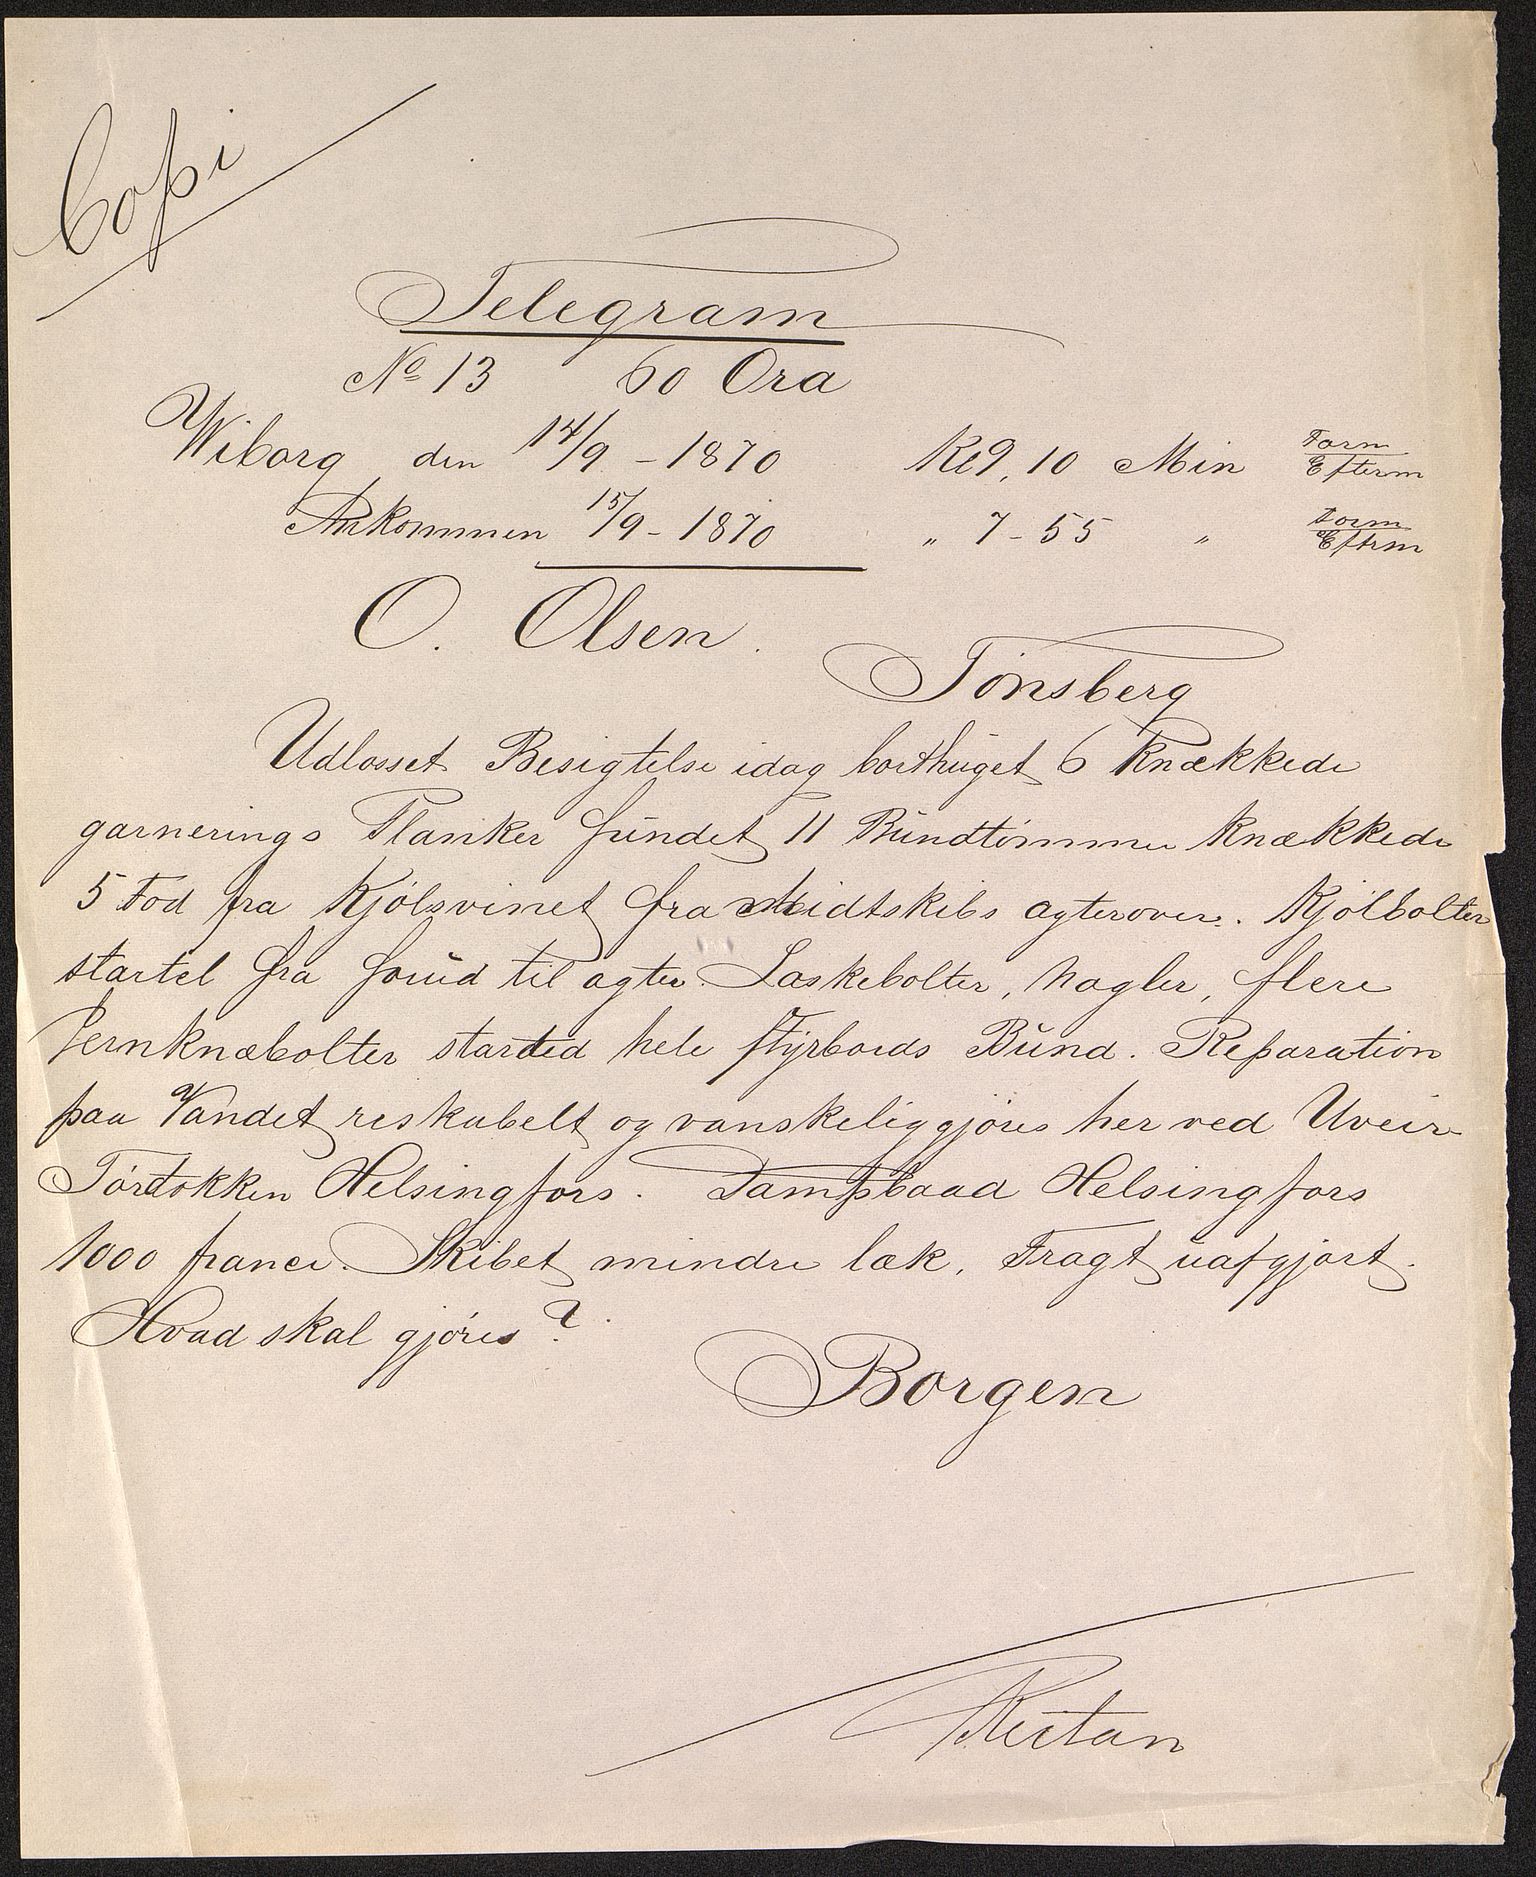 Copi
Telegram
No 13 60 Ora
Wiborg den 14/9 - 1870 Kl 9, 10 Min Form Efterm
Ankommen 15/9 - 1870 „ 7 - 55 „ form Eftrm
O. Olsen.
Tönsberg
Udlosset Besigtelse idag borthuget 6 knækkede
garnerings Planker fundet 11 Bundtömmer knækkede
5 Fod fra Kjölsvinet fra Midtskibs agterover. Kjölbolter
startet fra forud til agter. Laskebolter, nagler, flere
Jernknæbolter started hele Styrbords Bund. Reparation
paa Vandet reskabelt og vanskeliggjöres her ved Uveir
Tördokken Helsingfors. Dampbaad Helsingfors
1000 francs. Skibet mindre læk, Fragt uafgjort.
Hvad skal gjöres?
Borgen
Reitan